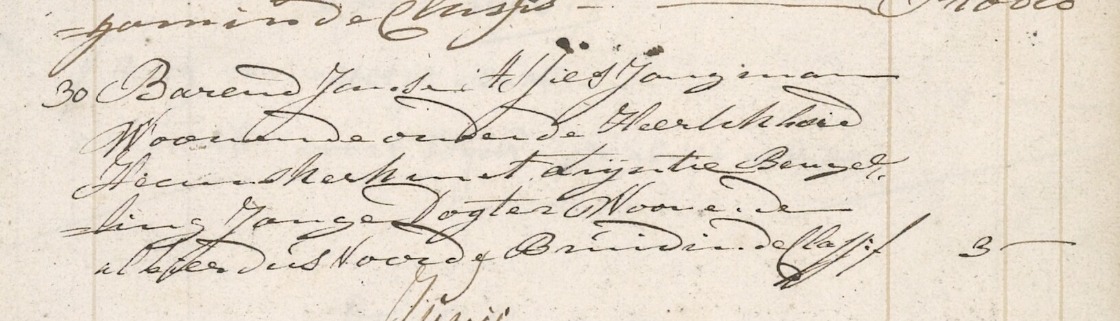 =gom in de Classis - Prodeo
30 Barend Janse in 't Sies Jongman
Woonende onder de Heerlikheid
Heemskerk met Lijntie Beugel
=ling Jonge Dogter Woonende
alhier dus voor de Bruid in de Classis f 3 —
Junij